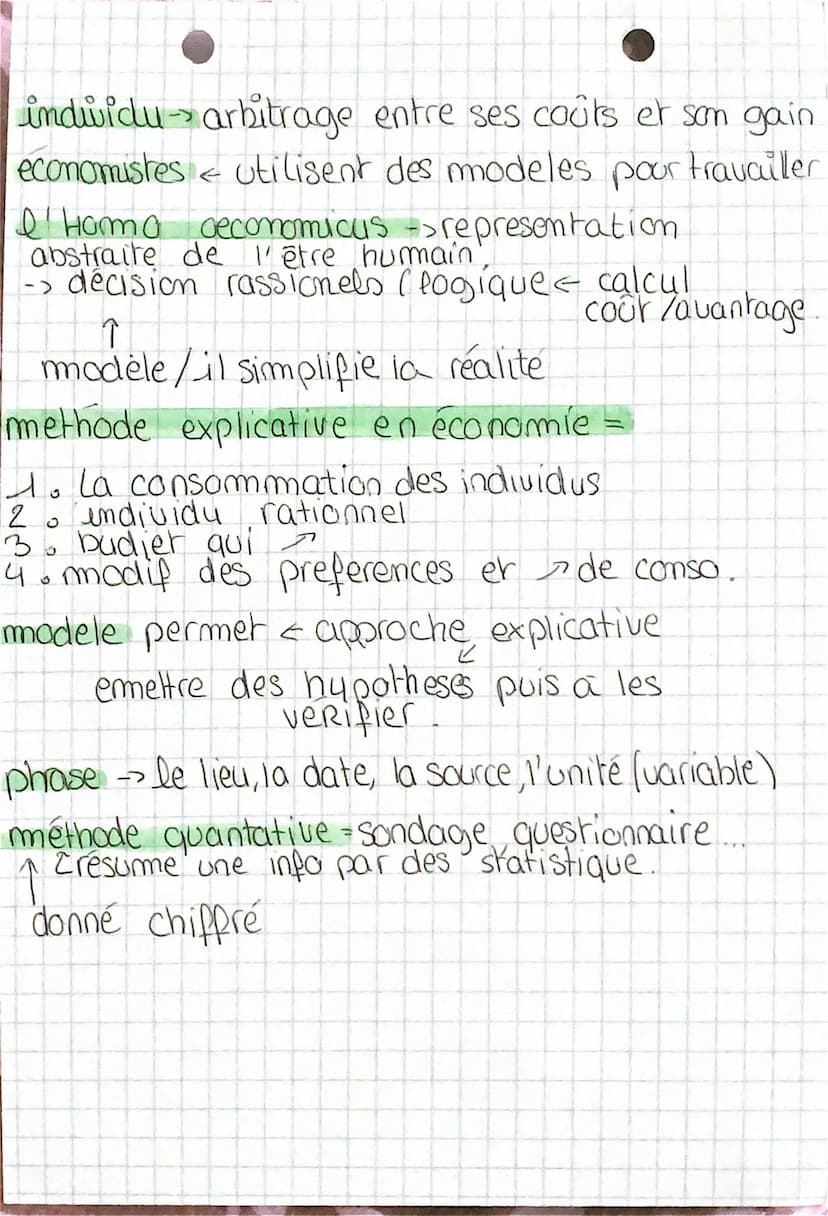 individu -> arbitrage entre ses coûts et son gain
economistes <- utilisent des modeles pour travailler
l'Homo oeconomicus -> representation
abstraite de l'être humain,
-> décision rassionels (logique <- calcul
coût/avantage.
↑
modèle/il simplifie la réalité
methode explicative en économie =
1. La consommation des individus
2. individu rationnel
3. budjer qui ↗
4. modif des preferences et ↗ de conso.
modele permet <- approche explicative
↙
emettre des hypotheses puis à les
vérifier.
phase -> le lieu, la date, la source, l'unité (variable)
méthode quantative = sondage, questionnaire...
↑ résume une info par des statistique.
donné chiffré